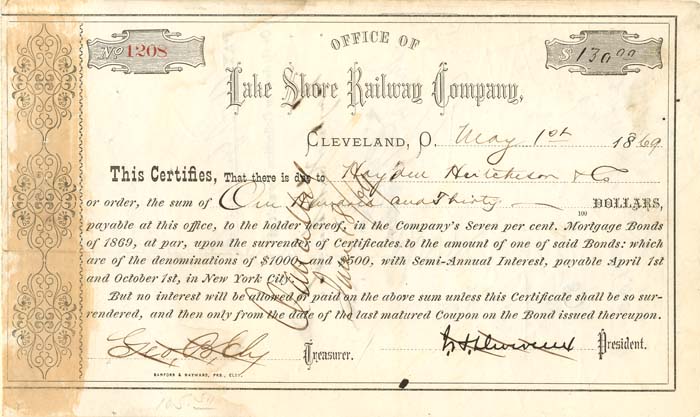 No 1208
OFFICE OF
$130 00
Lake Shore Railway Company,
CLEVELAND, O. May 1st 1869
This Certifies, That there is due to Hayden Hutcheson & Co
or order, the sum of One Hundred and Thirty — 100 DOLLARS,
payable at this office, to the holder hereof, in the Company's Seven per cent. Mortgage Bonds
of 1869, at par, upon the surrender of Certificates to the amount of one of said Bonds: which
are of the denominations of $1000 and $500, with Semi-Annual Interest, payable April 1st
and October 1st, in New York City.
But no interest will be allowed or paid on the above sum unless this Certificate shall be so sur-
rendered, and then only from the date of the last matured Coupon on the Bond issued thereupon.
Geo. B. Ely Treasurer. President.
SANFORD & HAYWARD, PRS., CLEV.